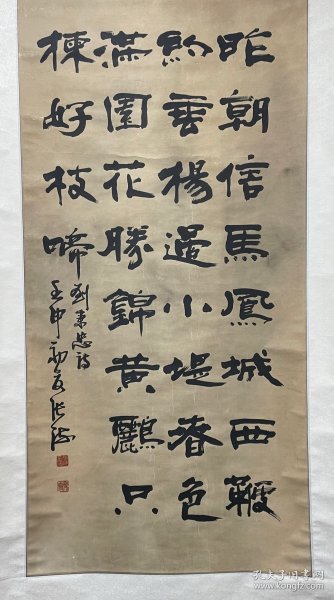 昨朝信馬鳳城西鞭
約垂楊過小堤春色
滿園花勝錦黃鸝只
揀好枝啼
劉秉忠詩
壬申初夏
孔夫子旧书网